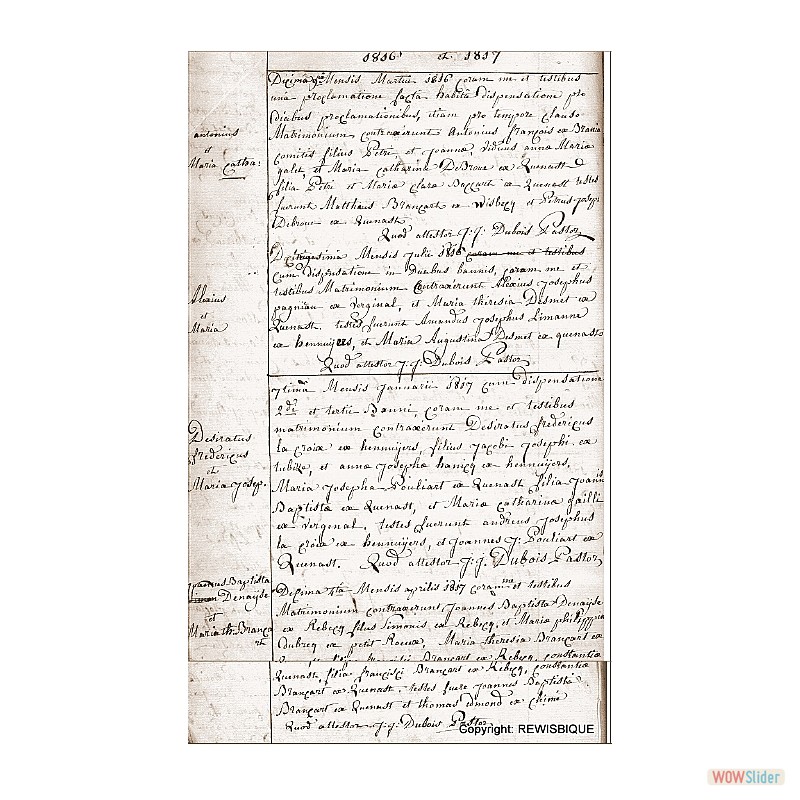 1816 et 1817
Decima 9na Mensis Martii 1816 coram me et testibus
una proclamatione facta habita dispensatione pro
duabus proclamationibus, etiam pro tempore clauso
Matrimonium contraxerunt Antonius françois ex Brania
antonius
et
Maria Catha:
Comitis filius Petri et joanna
galet, et Maria Catharina DeBroue ex Quenast
filia Petri et Maria Clara Baccart ex Quenast testes
fuerunt Mattheus Brancart ex Wisbecq et Petrus-joseph
Debroue ex Quenast
Quod attestor J.j. Dubois Pastor
Mensis julii 1816 coram me et testibus
cum dispensatione in Duobus bannis, coram me et
testibus Matrimonium Contraxerunt Alexius josephus
Alexius
et
Maria
pagniau ex verginal, et Maria theresia Desmet ex
Quenast. testes fuerunt Amandus josephus Limanne
ex hennuijeres, et Maria Augustina Desmet ex quenast
Quod attestor J.j. Dubois Pastor
7tima Mensis januarii 1817 cum dispensatione
2di et tertii Banni, coram me et testibus
matrimonium contraxerunt Desiratus fredericus
Desiratus
fredericus
et
Maria josep.
la croix ex hennuijers, filius jacobi josephi ex
tubize, et anna josepha hancq ex hennuijers,
Maria josepha Pouliart ex Quenast filia joannis
Baptista ex Quenast, et Maria Catharina
ex Verginal. testes fuerunt andreas josephus
la croix ex hennuijers, et joannes j: Pouliart ex
Quenast. Quod attestor J:j. Dubois Pastor
joannes Baptista
Denayse
et
Maria th: Brancart
Decima 4ta Mensis aprilis 1817 coram me et testibus
Matrimonium contraxerunt joannes Baptista Denayse
ex Rebecq filius simonis ex Rebecq, et Maria philippina
Dubrecq ex petit Roeux, Maria theresia Brancart ex
Quenast, filia francisci Brancart ex Rebecq, constantia
Brancart ex Quenast. testes fuere joannes Baptista
Brancart ex Quenast et thomas edmond ex Chime
Quod attestor J.j. Dubois Pastor
Copyright: REWISBIQUE
WOWSlider